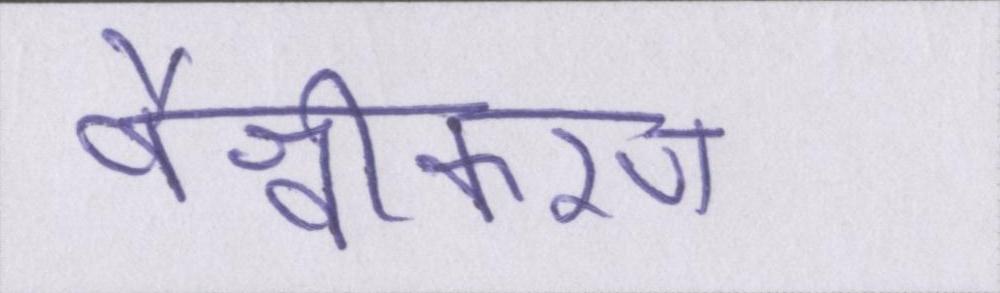 वैश्वीकरण